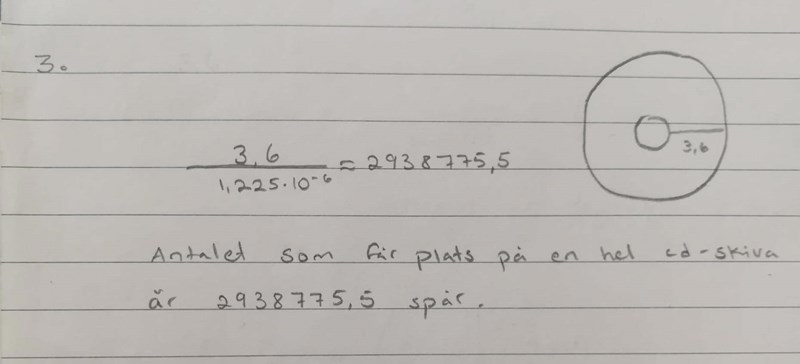 3.
3,6
3,6
1,225·10⁻⁶ = 2938775,5
Antalet som får plats på en hel cd-skiva
är 2938775,5 spår.